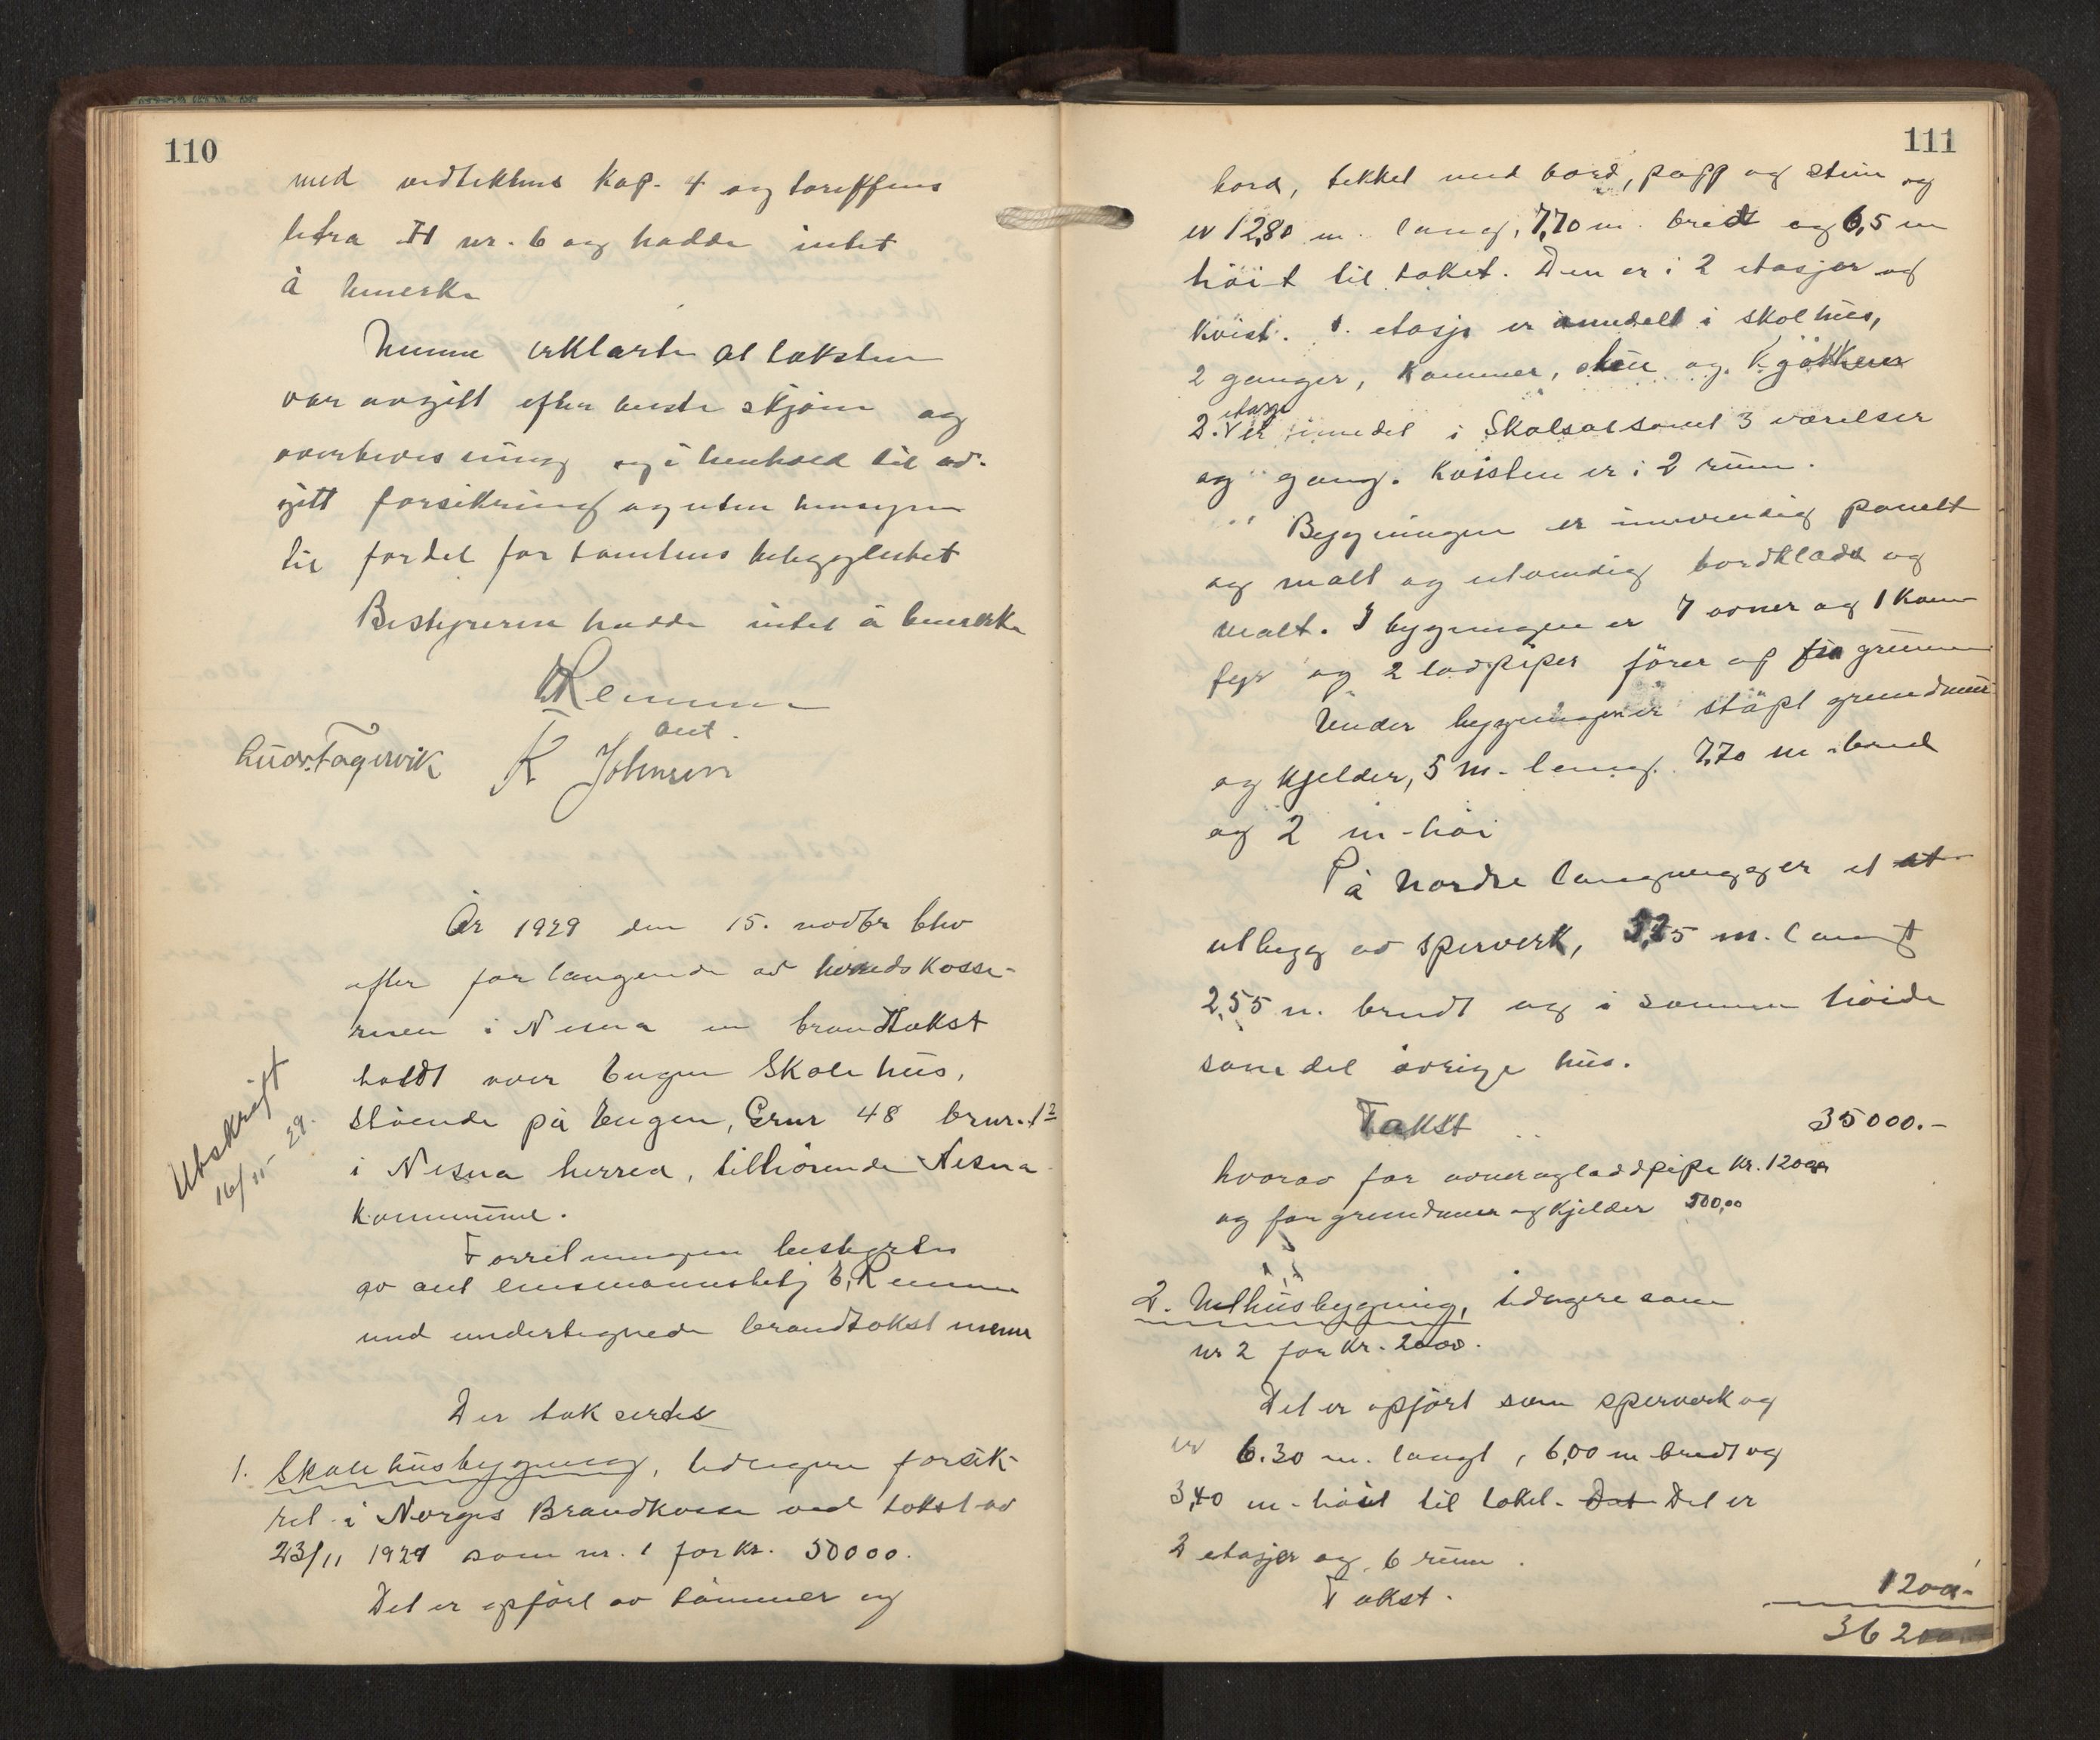 110
med vedtektens kap. 4 og tariffens
litra H nr. 6 og hadde intet
å bemerke
Menne erklærte at taksten
var avgitt efter beste skjønn og
overbevisning og i henhold til av-
gitt forsikring og uten hensyn
til fordel for tomtens beliggenhet
Bestyreren hadde intet å bemerke
Remmen
aut.
Ludv. Fagervik K Johnsen
År 1929 den 15. novbr blev
efter forlangende av herredskasse-
reren i Nesna en brandtakst
holdt over Engen Skolehus,
stående på Engen, Grnr 48 brnr. 12
i Nesna herred, tilhørende Nesna
kommune.
Utskrift
16/11-29.
Forretningen bestyrtes
av aut lensmannsbetj E, Remmen
med undertegnede brandtakst menn
Der takserdes
1. Skolehusbygning, tidligere forsik-
ret i Norges Brandkasse ved takst av
23/11 1921 som nr. 1 for kr. 50000.
Det er opført av tømmer og
111
bord, tekket med bord, papp og stein og
er 12,80 m. lang, 7,70 m. bredt og 6,5 m
høit til taket. Den er i 2 etasjer og
kvist. 1. etasje er inndelt i skolhus,
2 ganger, kammer, stue og kjøkken
etasje
2. er inndelt i Skolsal samt 3 værelser
og gang. Kvisten er i 2 rum.
Bygningen er innvendig panelt
og malt og utvendig bordklædd og
malt. I bygningen er 7 ovner og 1 kom-
fyr og 2 lodpiper fører op fra grunnen
Under bygningen er støpt grundmur
og kjelder, 5 m. lang. 7,70 m. bred
og 2 m. høi
På nordre langvegg er et et
utbygg av sperverk, 5,25 m. langt
2,55 m. bredt og i samme høide
som det øvrige hus.
Takst 35000.-
hvorav for ovner og loddpipe kr. 1200,00
og for grundmur og kjelder 500,00
2. Uthusbygning, tidligere som
nr 2 for kr. 2000.
Det er opført som sperverk og
er 6.30 m. langt, 6,00 m bredt og
3,40 m. høit til taket. Det Det er
2 etasjer og 6 rum.
Takst. 1200.-
36200